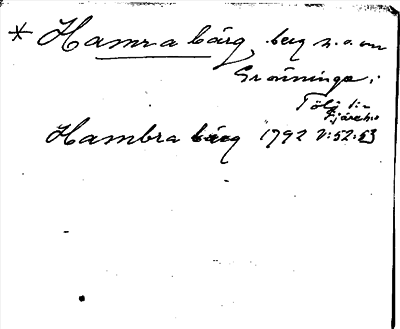 * Hamra bärg, berg n.o. om
Grönninge i
Tölö s:n
Fjäre h:d
Hambra bärg 1792 V:52:53